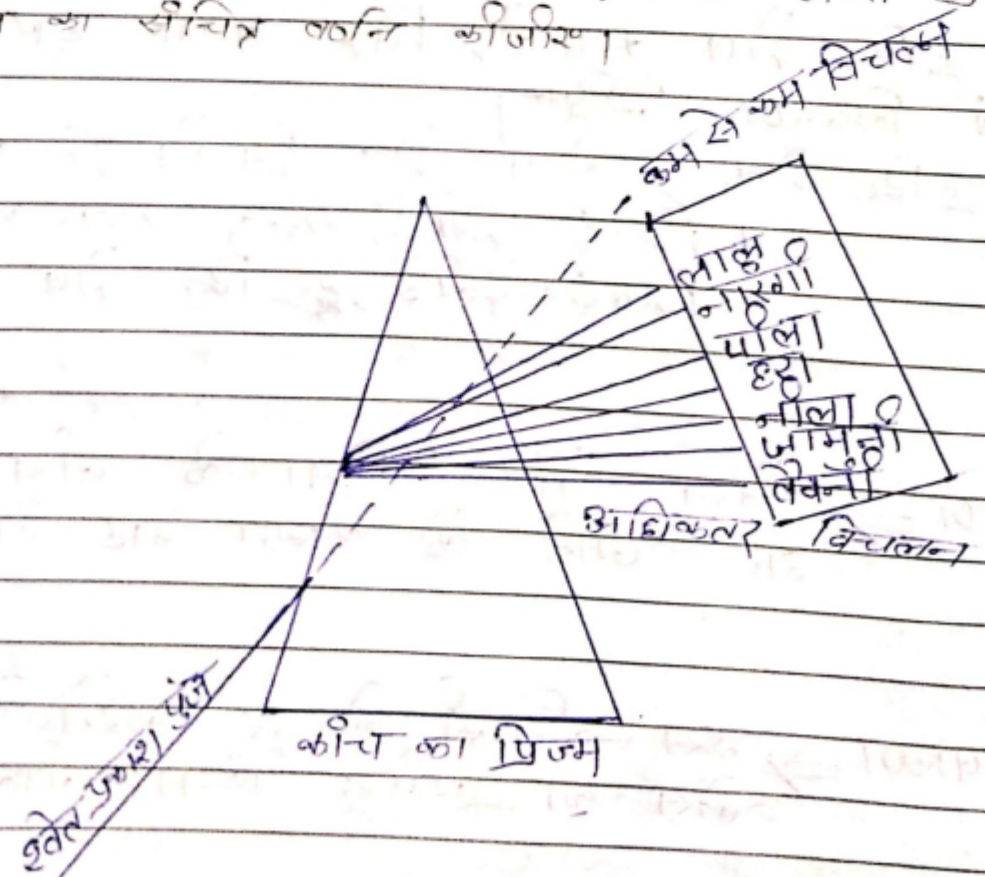 का सचित्र वर्णन कीजिए।
कम से कम विचलन
लाल
नारंगी
पीला
हरा
नीला
जामनी
बैंगनी
अधिकतर विचलन
काँच का प्रिज्म
श्वेत प्रकाश पुंज